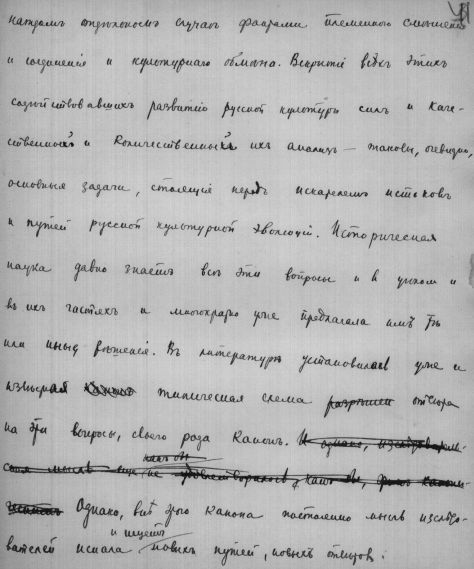 каждомъ отдѣльномъ случаѣ факторами племенного смѣшенія
и соединенія и культурнаго обмѣна. Вскрытіе всѣхъ этихъ
содѣйствовавшихъ развитію русской культуры силъ и каче-
ственный и количественный ихъ анализъ — таковы, очевидно,
основныя задачи, стоящія передъ искателемъ истоковъ
и путей русской культурной эволюціи. Историческая
наука давно знаетъ всѣ эти вопросы и въ цѣломъ и
въ ихъ частяхъ и многократно уже предлагала имъ тѣ
или иныя рѣшенія. Въ литературѣ установилась уже и
типическая схема отвѣта
на эти вопросы, своего рода канонъ. И однако, изслѣдователь-
ская мысль еще не удовлетворилась
какъ бы
Однако, внѣ этого канона постоянно мысль изслѣдо-
и ищетъ
вателей искала новыхъ путей, новыхъ отвѣтовъ.